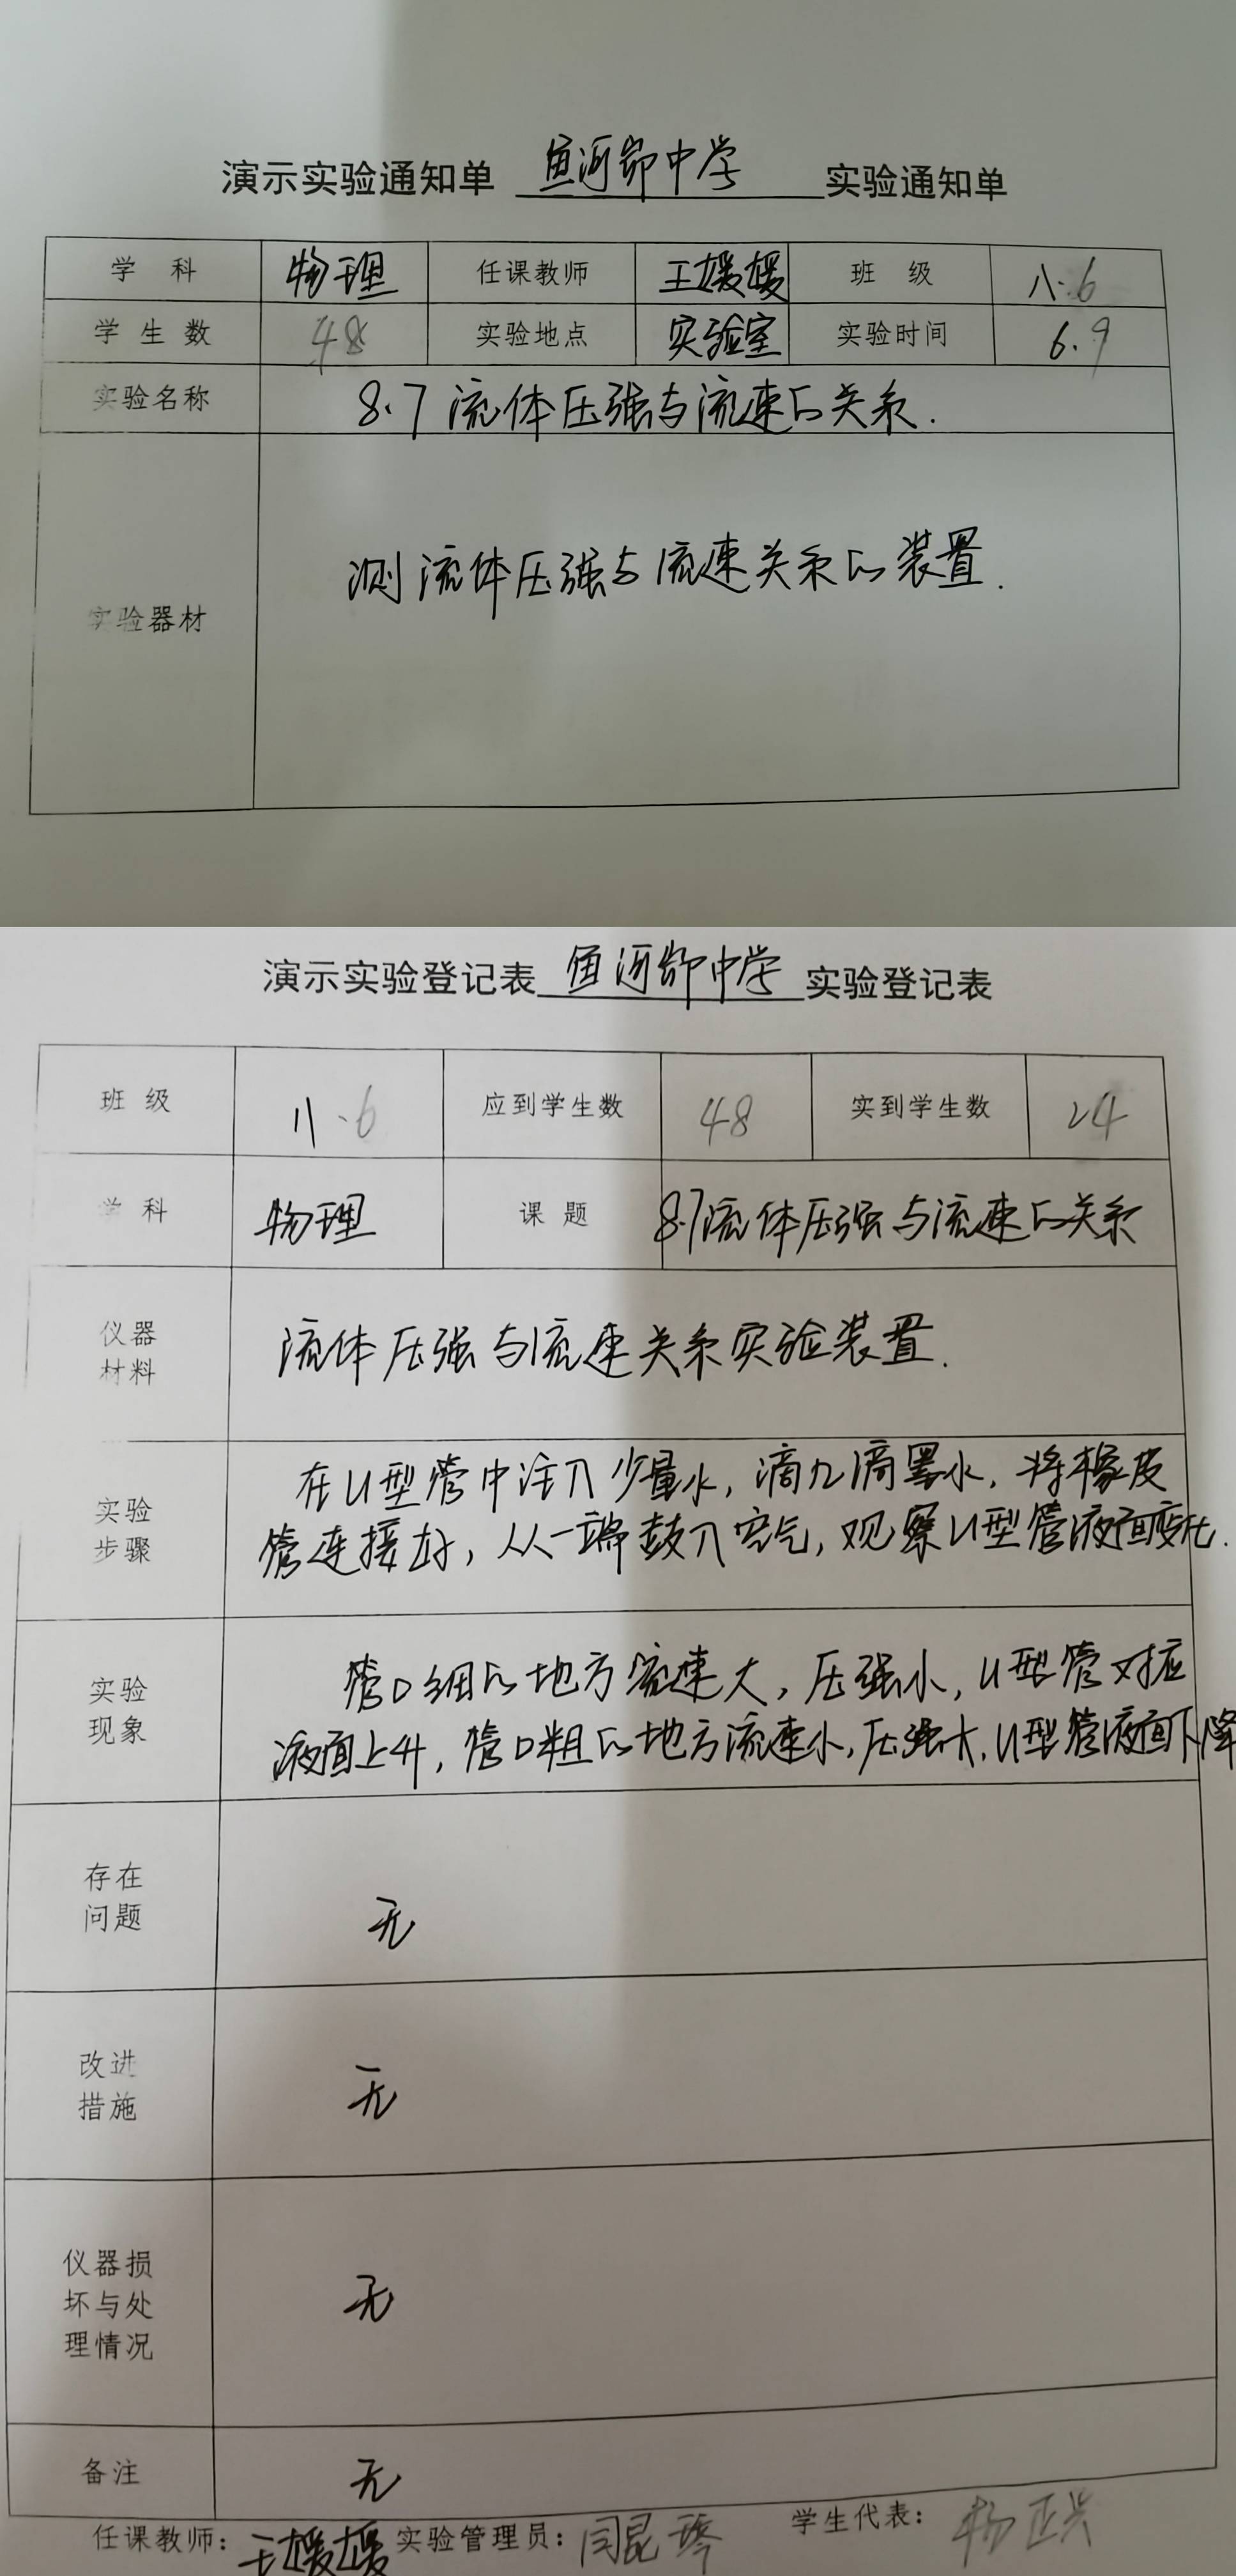 演示实验通知单 鱼河峁中学 实验通知单
学 科 物理 任课教师 王媛媛 班 级 八.6
学 生 数 48 实验地点 实验室 实验时间 6.9
实验名称 8.7 流体压强与流速的关系.
实验器材 测流体压强与流速关系的装置.
演示实验登记表 鱼河峁中学 实验登记表
班 级 八.6 应到学生数 48 实到学生数 24
学 科 物理 课 题 8.7流体压强与流速的关系
仪器
材料
流体压强与流速关系实验装置.
实验
步骤
在U型管中注入少量水, 滴几滴墨水, 将橡皮
管连接好, 从一端鼓入空气, 观察U型管液面变化.
实验
现象
管口细的地方流速大, 压强小, U型管对应
液面上升, 管口粗的地方流速小, 压强大, U型管液面下降
存在
问题
无
改进
措施
无
仪器损
坏与处
理情况
无
备注 无
任课教师: 王媛媛 实验管理员: 闫昆琴 学生代表: 杨正兴